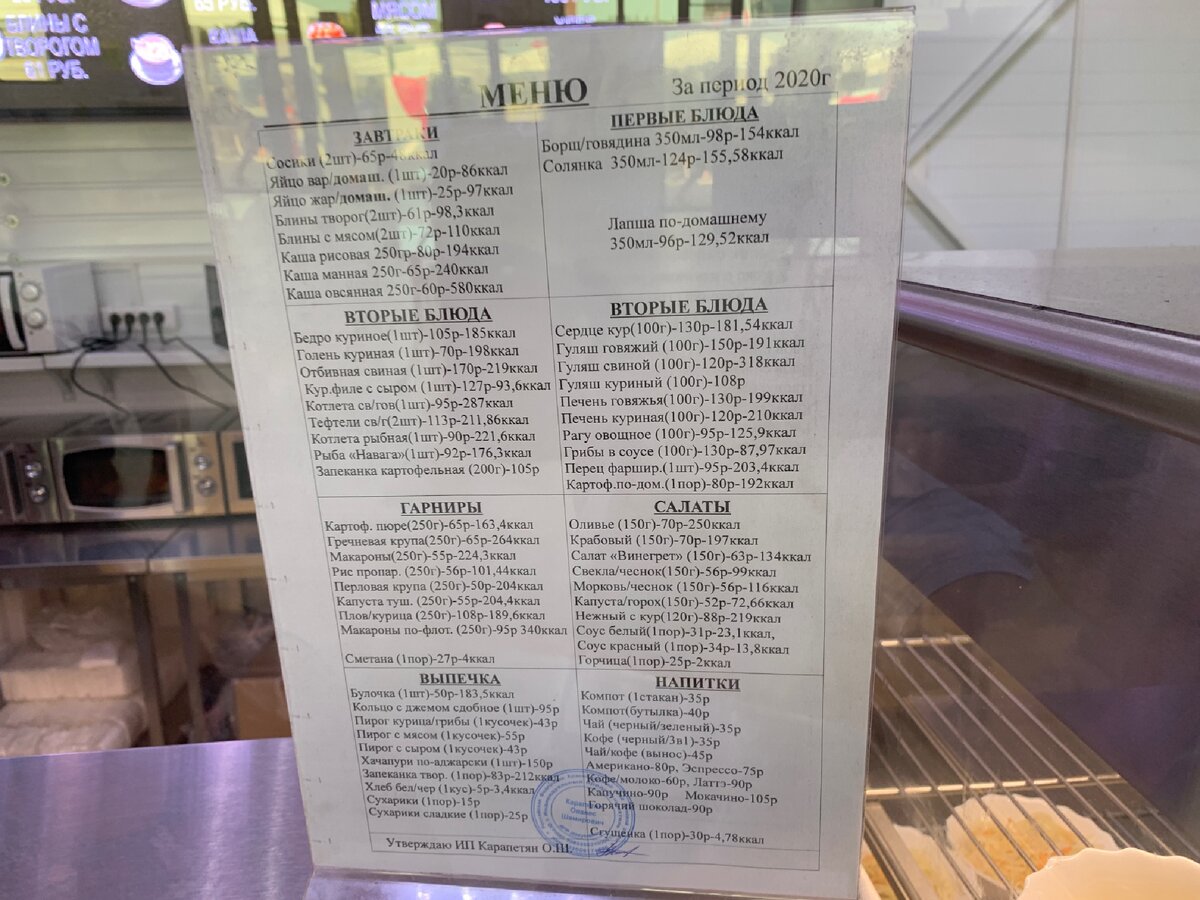 65 РУБ.
БЛИНЫ С
ТВОРОГОМ
61 РУБ.
КАША
МЯСОМ
МЕНЮ
За период 2020г
ЗАВТРАКИ
Сосики (2шт)-65р-
Яйцо вар/домаш. (1шт)-20р-86ккал
Яйцо жар/домаш. (1шт)-25р-97ккал
Блины творог(2шт)-61р-98,3ккал
Блины с мясом(2шт)-72р-110ккал
Каша рисовая 250гр-80р-194ккал
Каша манная 250г-65р-240ккал
Каша овсянная 250г-60р-580ккал
ПЕРВЫЕ БЛЮДА
Борщ/говядина 350мл-98р-154ккал
Солянка 350мл-124р-155,58ккал
Лапша по-домашнему
350мл-96р-129,52ккал
ВТОРЫЕ БЛЮДА
Бедро куриное(1шт)-105р-185ккал
Голень куриная (1шт)-70р-198ккал
Отбивная свиная (1шт)-170р-219ккал
Кур.филе с сыром (1шт)-127р-93,6ккал
Котлета св/гов(1шт)-95р-287ккал
Тефтели св/г(2шт)-113р-211,86ккал
Котлета рыбная(1шт)-90р-221,6ккал
Рыба «Навага»(1шт)-92р-176,3ккал
Запеканка картофельная (200г)-105р
ВТОРЫЕ БЛЮДА
Сердце кур(100г)-130р-181,54ккал
Гуляш говяжий (100г)-150р-191ккал
Гуляш свиной (100г)-120р-318ккал
Гуляш куриный (100г)-108р
Печень говяжья(100г)-130р-199ккал
Печень куриная(100г)-120р-210ккал
Рагу овощное (100г)-95р-125,9ккал
Грибы в соусе (100г)-130р-87,97ккал
Перец фаршир.(1шт)-95р-203,4ккал
Картоф.по-дом.(1пор)-80р-192ккал
ГАРНИРЫ
Картоф. пюре(250г)-65р-163,4ккал
Гречневая крупа(250г)-65р-264ккал
Макароны(250г)-55р-224,3ккал
Рис пропар. (250г)-56р-101,44ккал
Перловая крупа (250г)-50р-204ккал
Капуста туш. (250г)-55р-204,4ккал
Плов/курица (250г)-108р-189,6ккал
Макароны по-флот. (250г)-95р 340ккал
Сметана (1пор)-27р-4ккал
САЛАТЫ
Оливье (150г)-70р-250ккал
Крабовый (150г)-70р-197ккал
Салат «Винегрет» (150г)-63р-134ккал
Свекла/чеснок(150г)-56р-99ккал
Морковь/чеснок (150г)-56р-116ккал
Капуста/горох(150г)-52р-72,66ккал
Нежный с кур(120г)-88р-219ккал
Соус белый(1пор)-31р-23,1ккал,
Соус красный (1пор)-34р-13,8ккал
Горчица(1пор)-25р-2ккал
ВЫПЕЧКА
Булочка (1шт)-50р-183,5ккал
Кольцо с джемом сдобное (1шт)-95р
Пирог курица/грибы (1кусочек)-43р
Пирог с мясом (1кусочек)-55р
Пирог с сыром (1кусочек)-43р
Хачапури по-аджарски (1шт)-150р
Запеканка твор. (1пор)-83р-212ккал
Хлеб бел/чер (1кус)-5р-3,4ккал
Сухарики (1пор)-15р
Сухарики сладкие (1пор)-25р
НАПИТКИ
Компот (1стакан)-35р
Компот(бутылка)-40р
Чай (черный/зеленый)-35р
Кофе (черный/3в1)-35р
Чай/кофе (вынос)-45р
Американо-80р, Эспрессо-75р
Кофе/молоко-60р, Латтэ-90р
Капучино-90р Мокачино-105р
Горячий шоколад-90р
Сгущёнка (1пор)-30р-4,78ккал
Карапетян
Ованес
Шамирович
Утверждаю ИП Карапетян О.Ш.